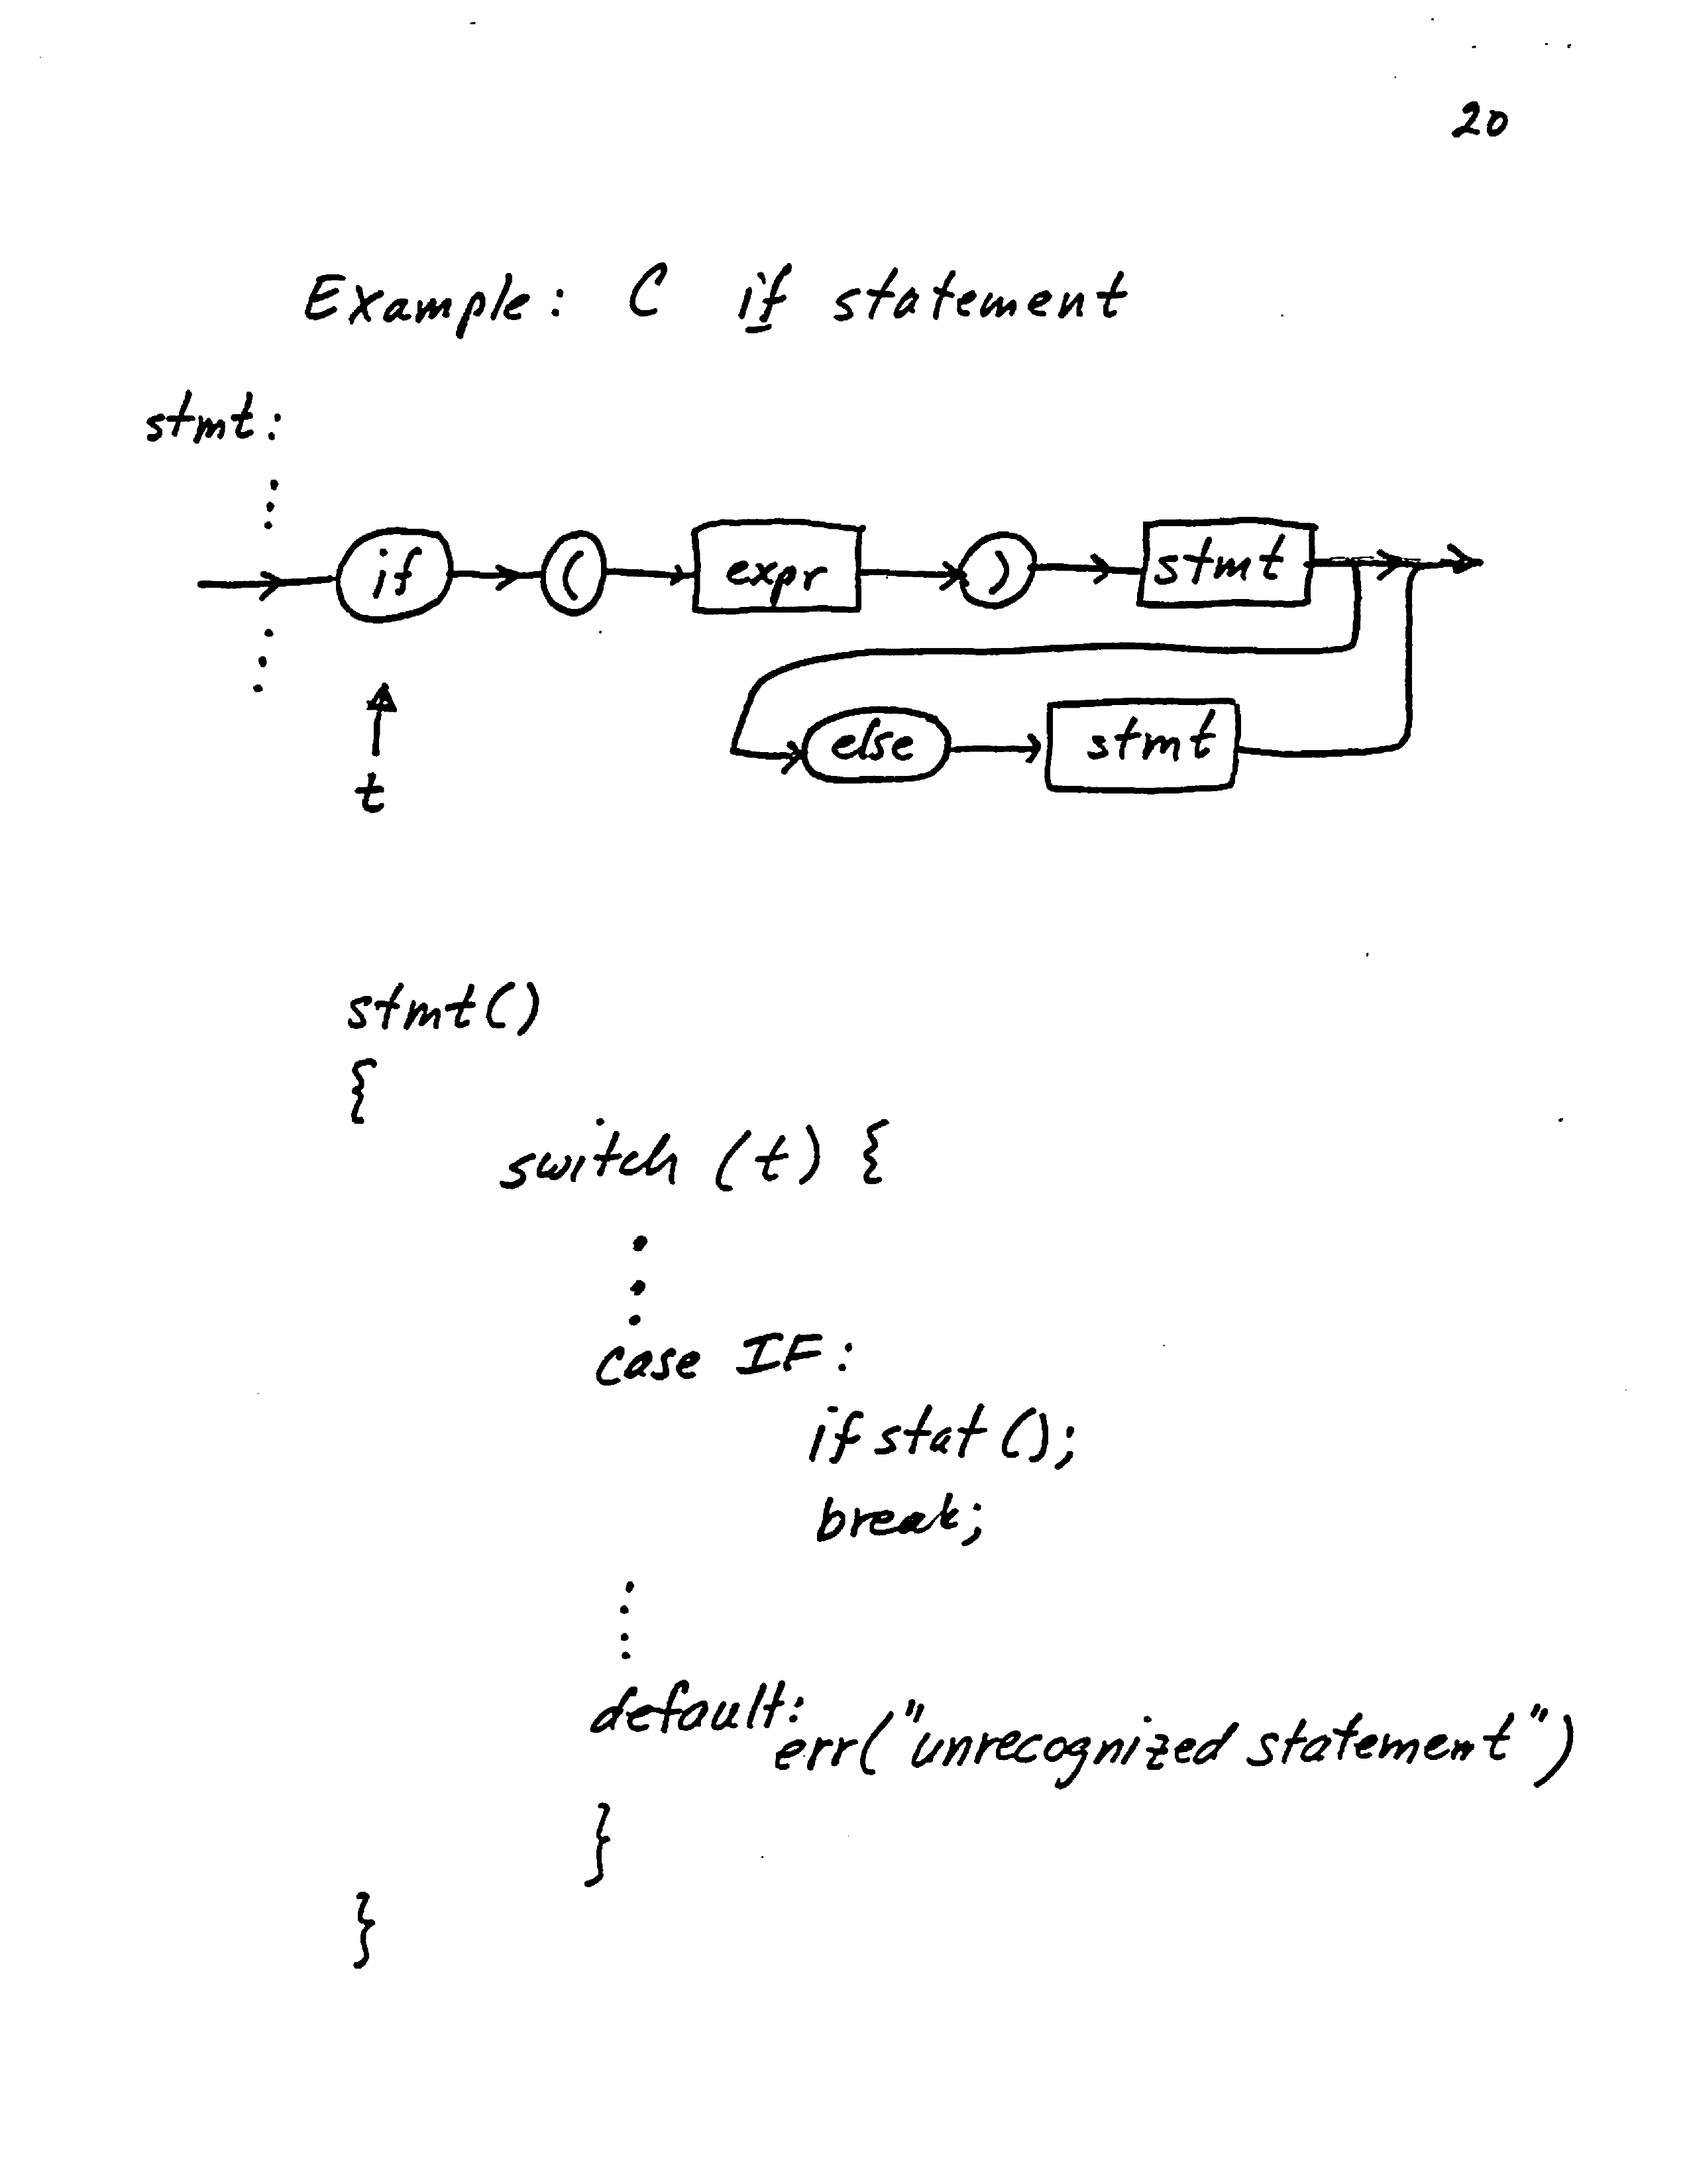 20
Example: C if statement
stmt:
if ( expr ) stmt
else stmt
t
stmt()
{
switch (t) {
case IF:
ifstat();
break;
default:
err("unrecognized statement")
}
}